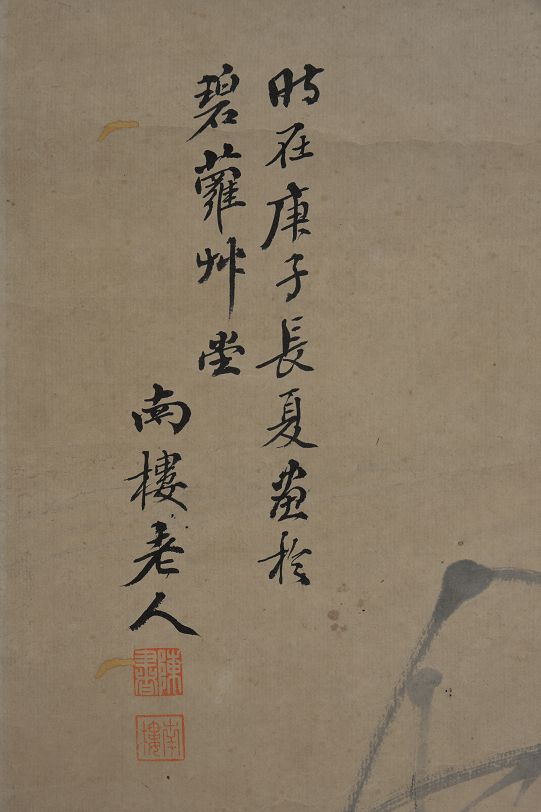 時在庚子長夏畫於
碧蘿艸堂
南樓老人
陳書
南樓